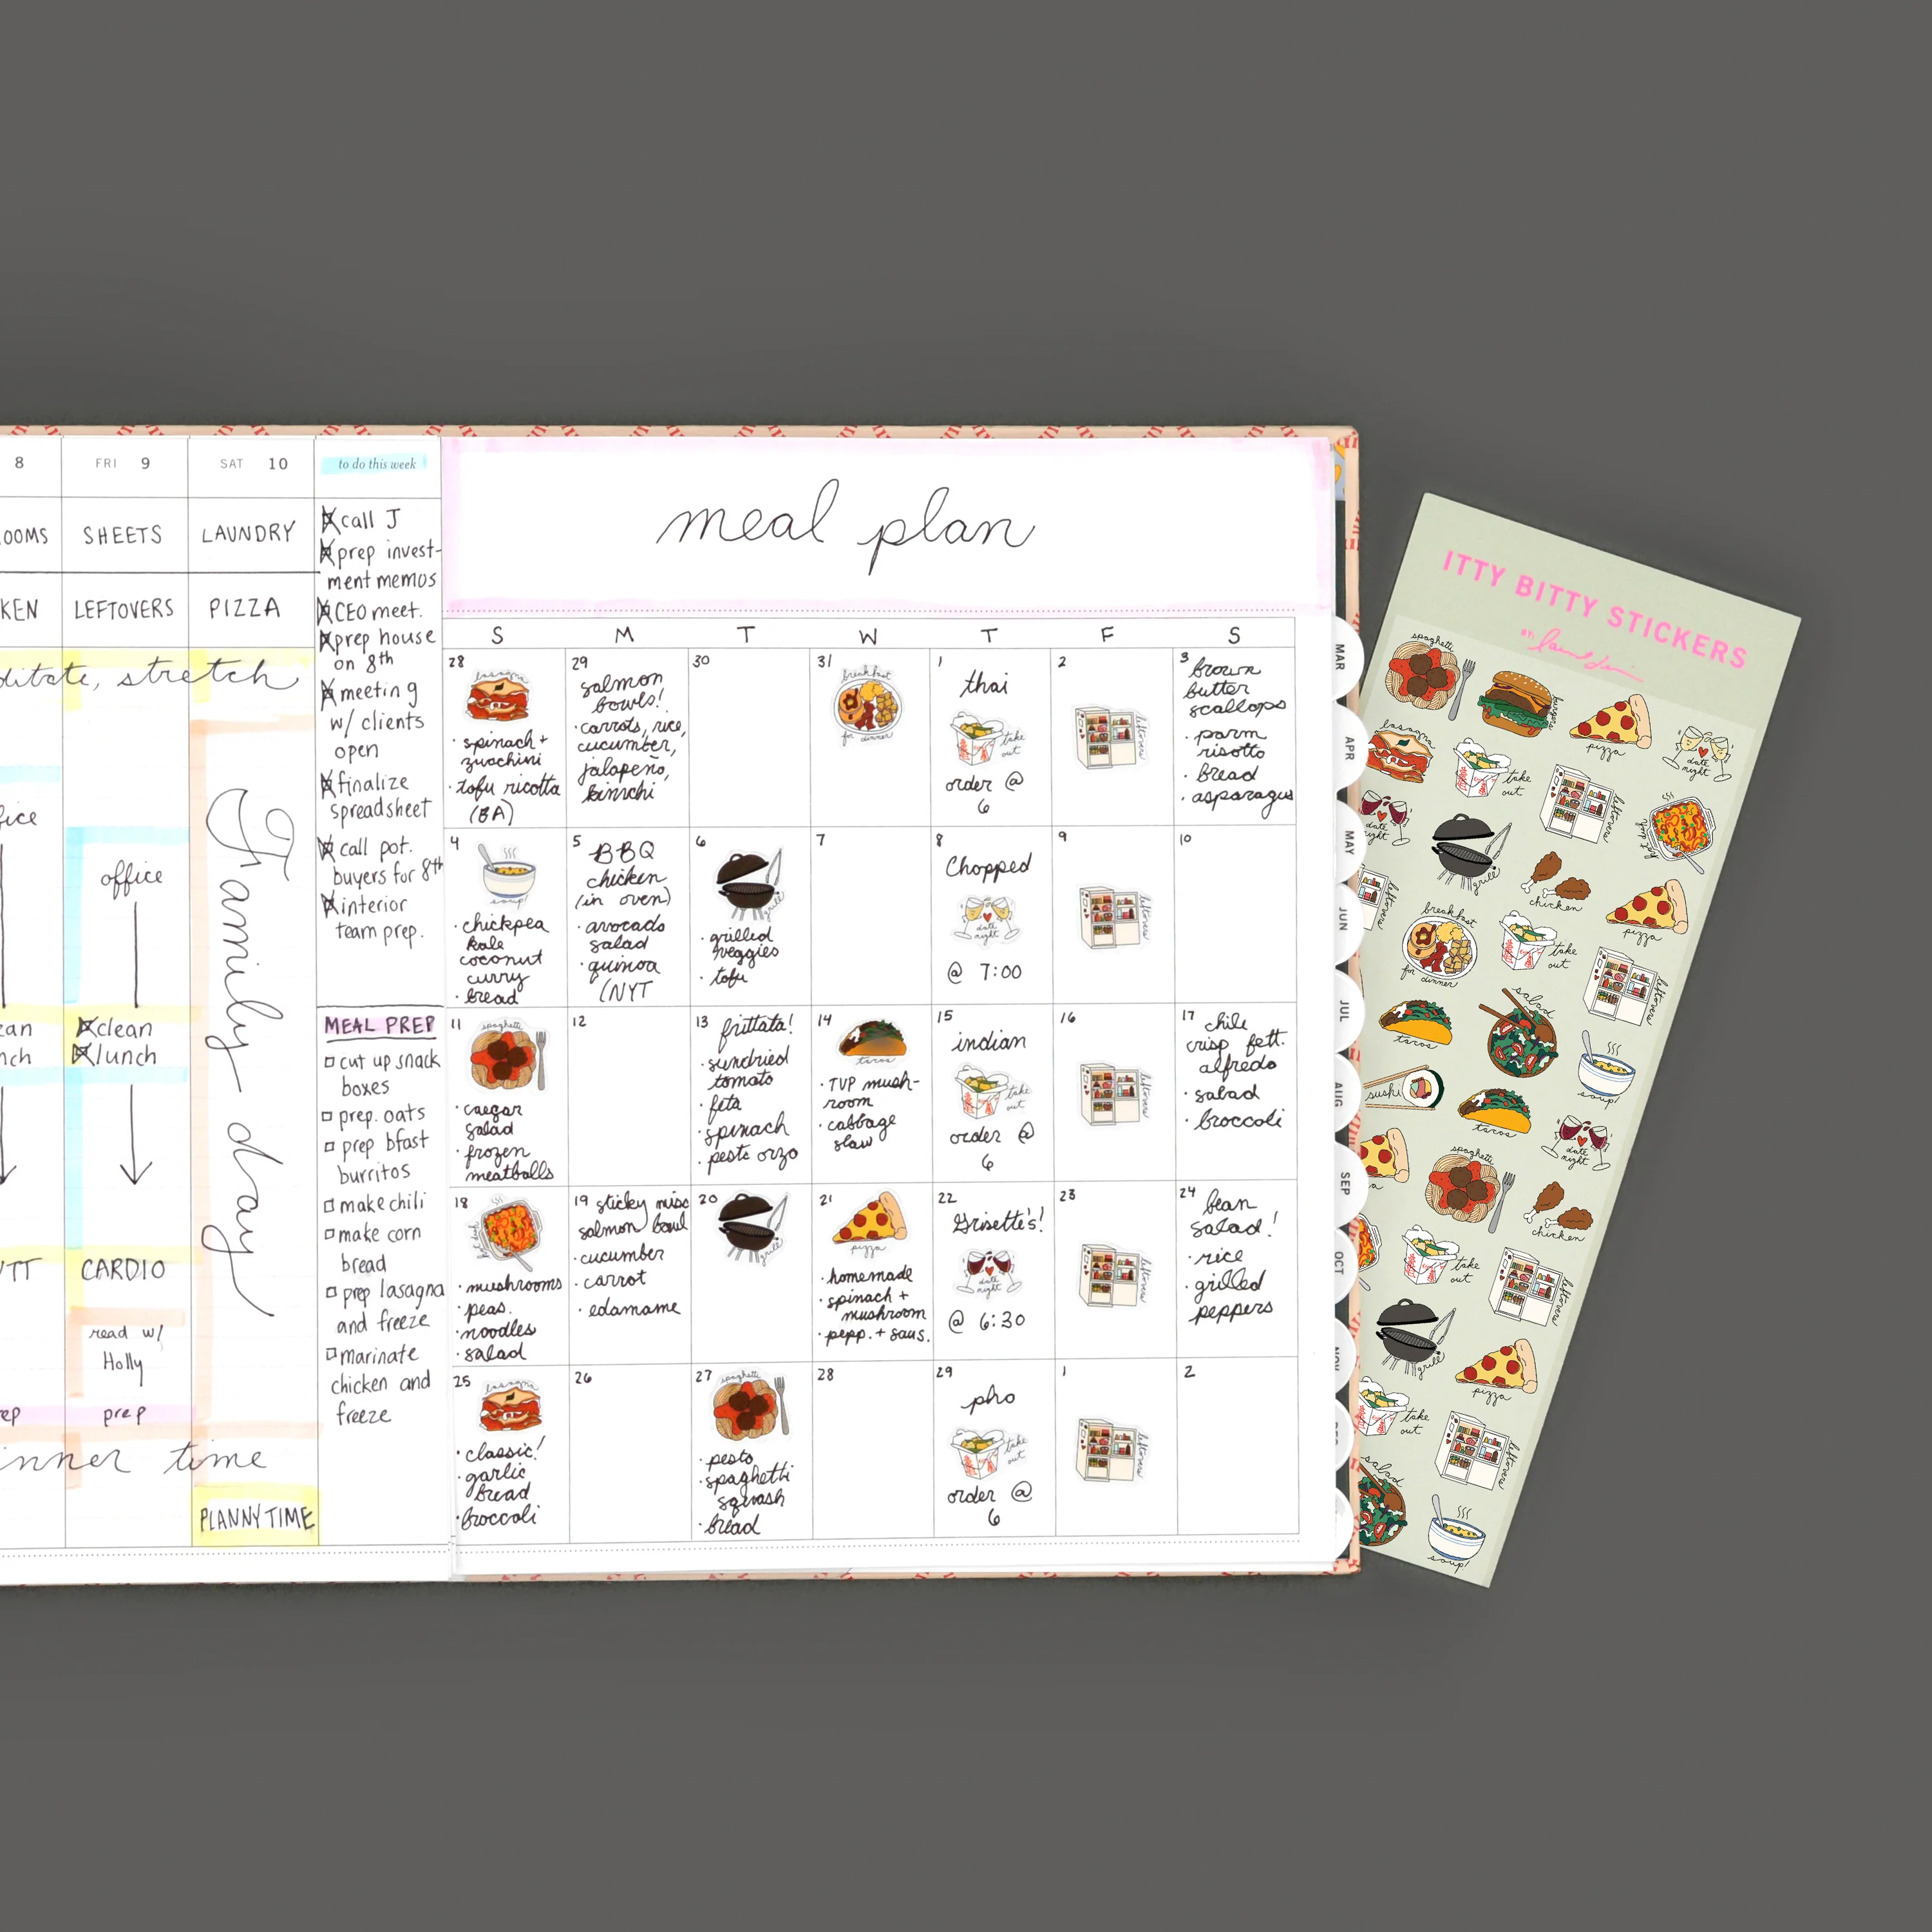 8
FRI 9
SAT 10
to do this week
OOMS
SHEETS
LAUNDRY
KEN
LEFTOVERS
PIZZA
ditate, stretch
fice
office
Family day
ean
nch
clean
lunch
UTT
CARDIO
read w/
Holly
ep
prep
inner time
PLANNY TIME
call J
prep invest-
ment memos
CEO meet.
prep house
on 8th
meeting
w/ clients
open
finalize
spreadsheet
call pot.
buyers for 8th
interior
team prep.
MEAL PREP
cut up snack
boxes
prep. oats
prep bfast
burritos
make chili
make corn
bread
prep lasagna
and freeze
marinate
chicken and
freeze
meal plan
S M T W T F S
28
lasagna
· spinach +
zucchini
· tofu ricotta
(BA)
29
salmon
bowls!
· carrots, rice,
cucumber,
jalapeño,
kimchi
30
31
breakfast
for dinner
1
thai
take
out
order @
6
2
leftovers
3
brown
butter
scallops
· parm
risotto
· bread
· asparagus
4
soup!
· chickpea
kale
coconut
curry
· bread
5
BBQ
chicken
(in oven)
· avocado
salad
· quinoa
(NYT
6
grill
· grilled
veggies
· tofu
7
8
Chopped
date
night
@ 7:00
9
leftovers
10
11
spaghetti
· caesar
salad
· frozen
meatballs
12
13
frittata!
· sundried
tomato
· feta
· spinach
· pesto orzo
14
tacos
· TVP mush-
room
· cabbage
slaw
15
indian
take
out
order @
6
16
leftovers
17
chile
crisp fett.
alfredo
· salad
· broccoli
18
· mushrooms
· peas.
· noodles
· salad
19
sticky miso
salmon bowl
· cucumber
· carrot
· edamame
20
grill
21
pizza
· homemade
· spinach +
mushroom
· pepp. + saus.
22
Grisette's!
date
night
@ 6:30
23
leftovers
24
bean
salad!
· rice
· grilled
peppers
25
lasagna
· classic!
· garlic
bread
· broccoli
26
27
spaghetti
· pesto
· spaghetti
squash
· bread
28
29
pho
take
out
order @
6
1
leftovers
2
MAR
APR
MAY
JUN
JUL
AUG
SEP
OCT
NOV
DEC
ITTY BITTY STICKERS
spaghetti
burgers
pizza
date
night
lasagna
take
out
leftovers
date
night
grill
chicken
pizza
breakfast
for dinner
take
out
leftovers
tacos
salad
soup!
sushi
tacos
date
night
spaghetti
chicken
take
out
leftovers
grill
pizza
take
out
leftovers
salad
soup!